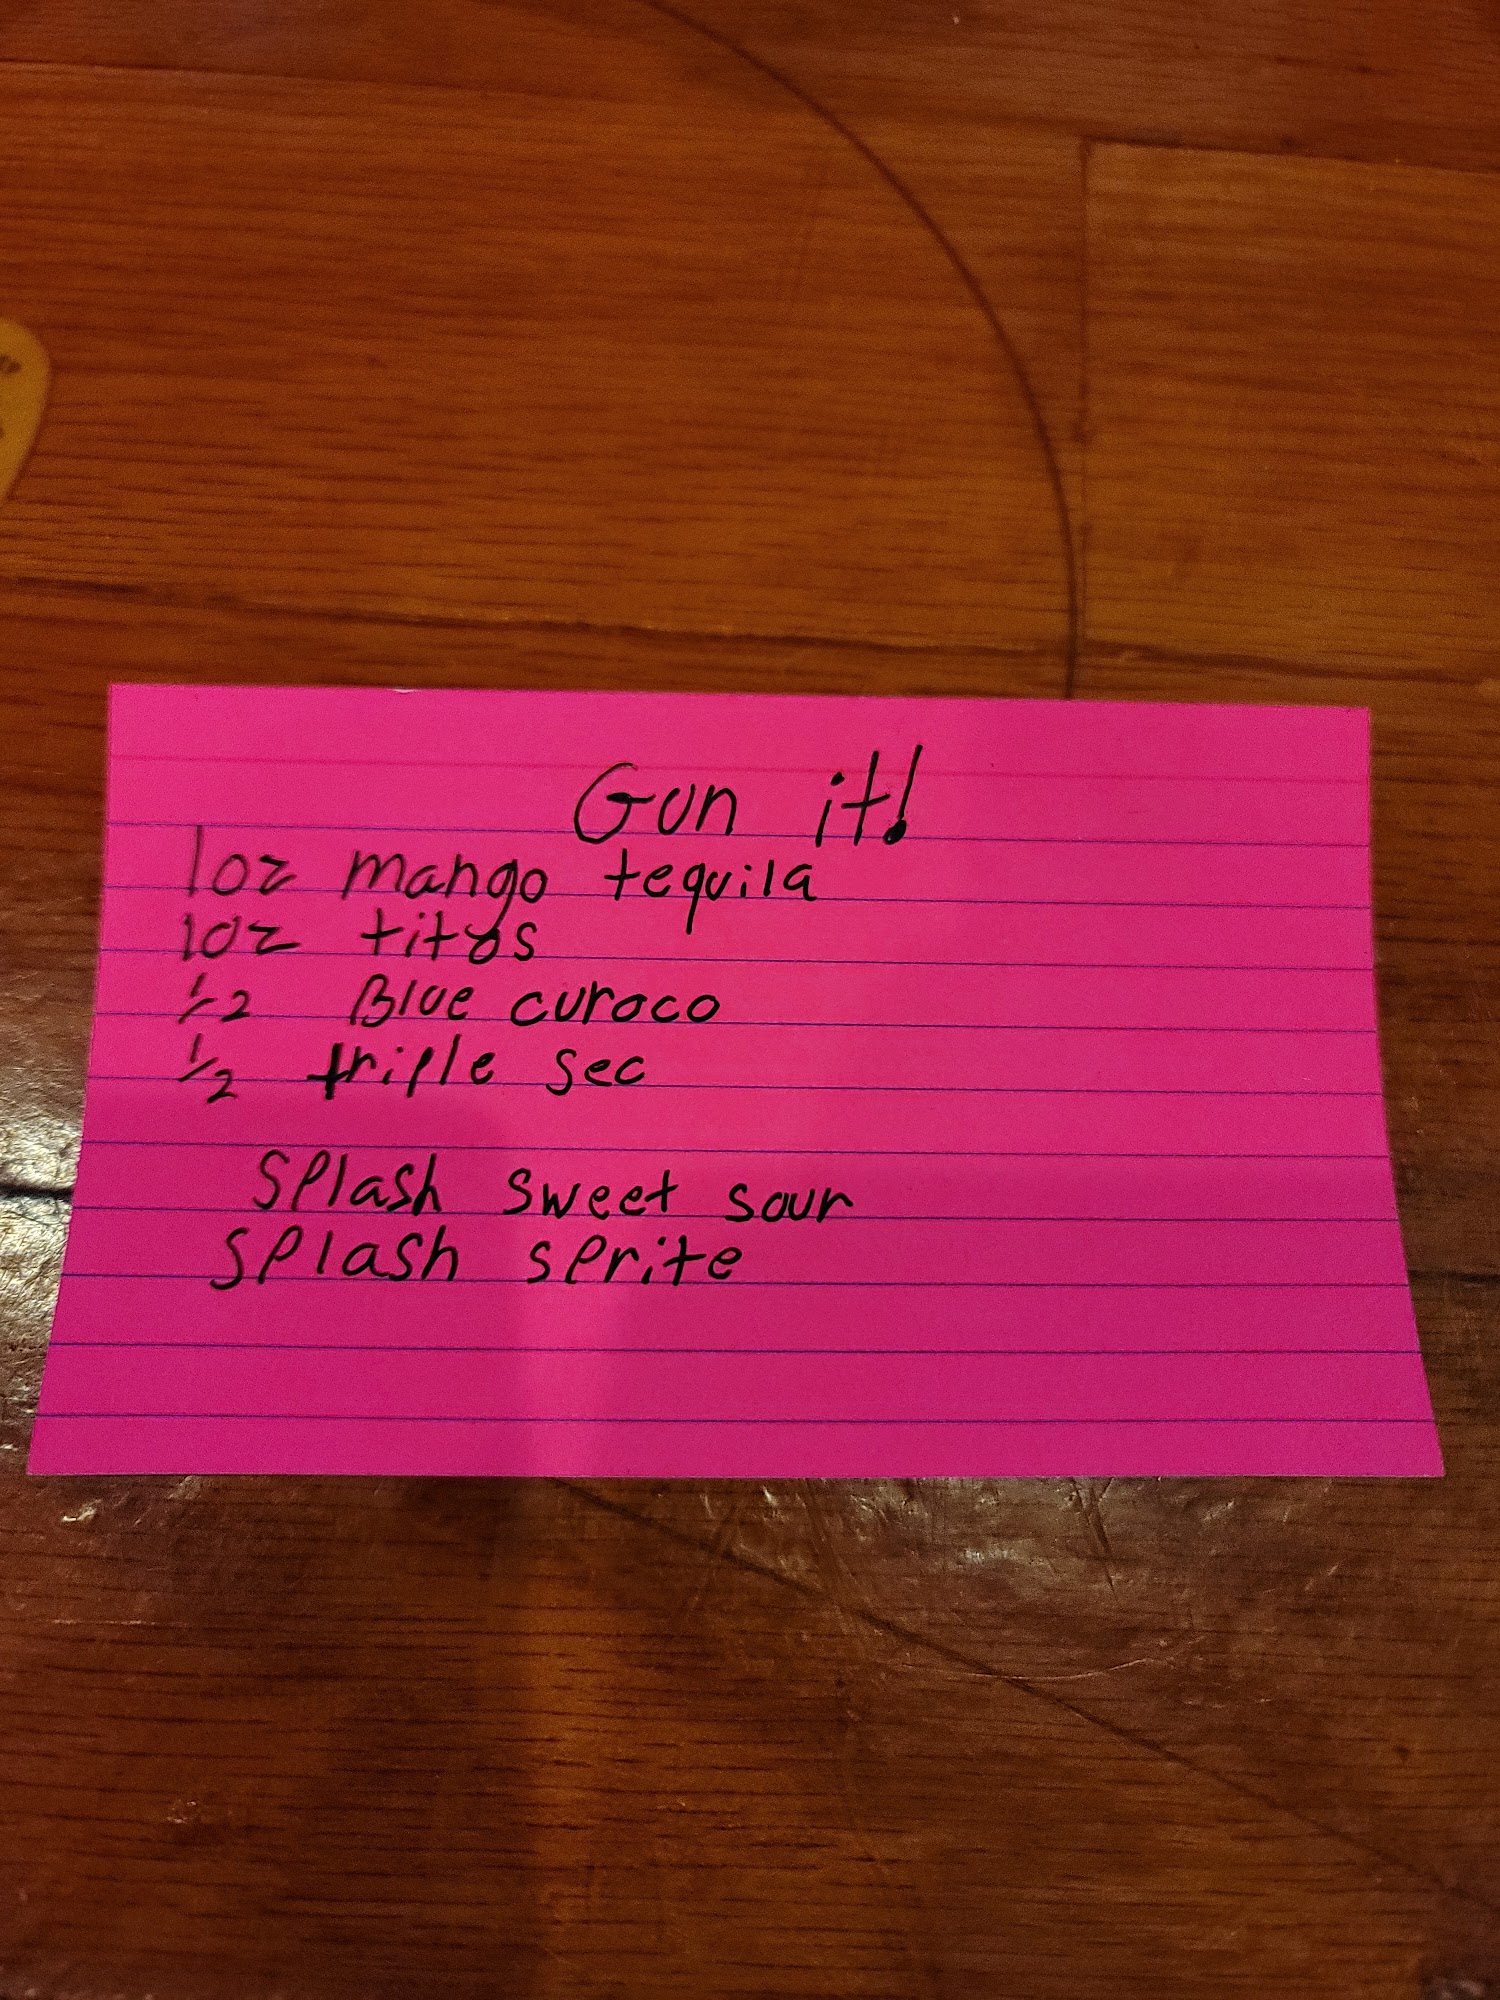 Gun it!
1oz mango tequila
1oz titos
1/2 Blue curoco
1/2 triple sec
Splash sweet sour
Splash sprite